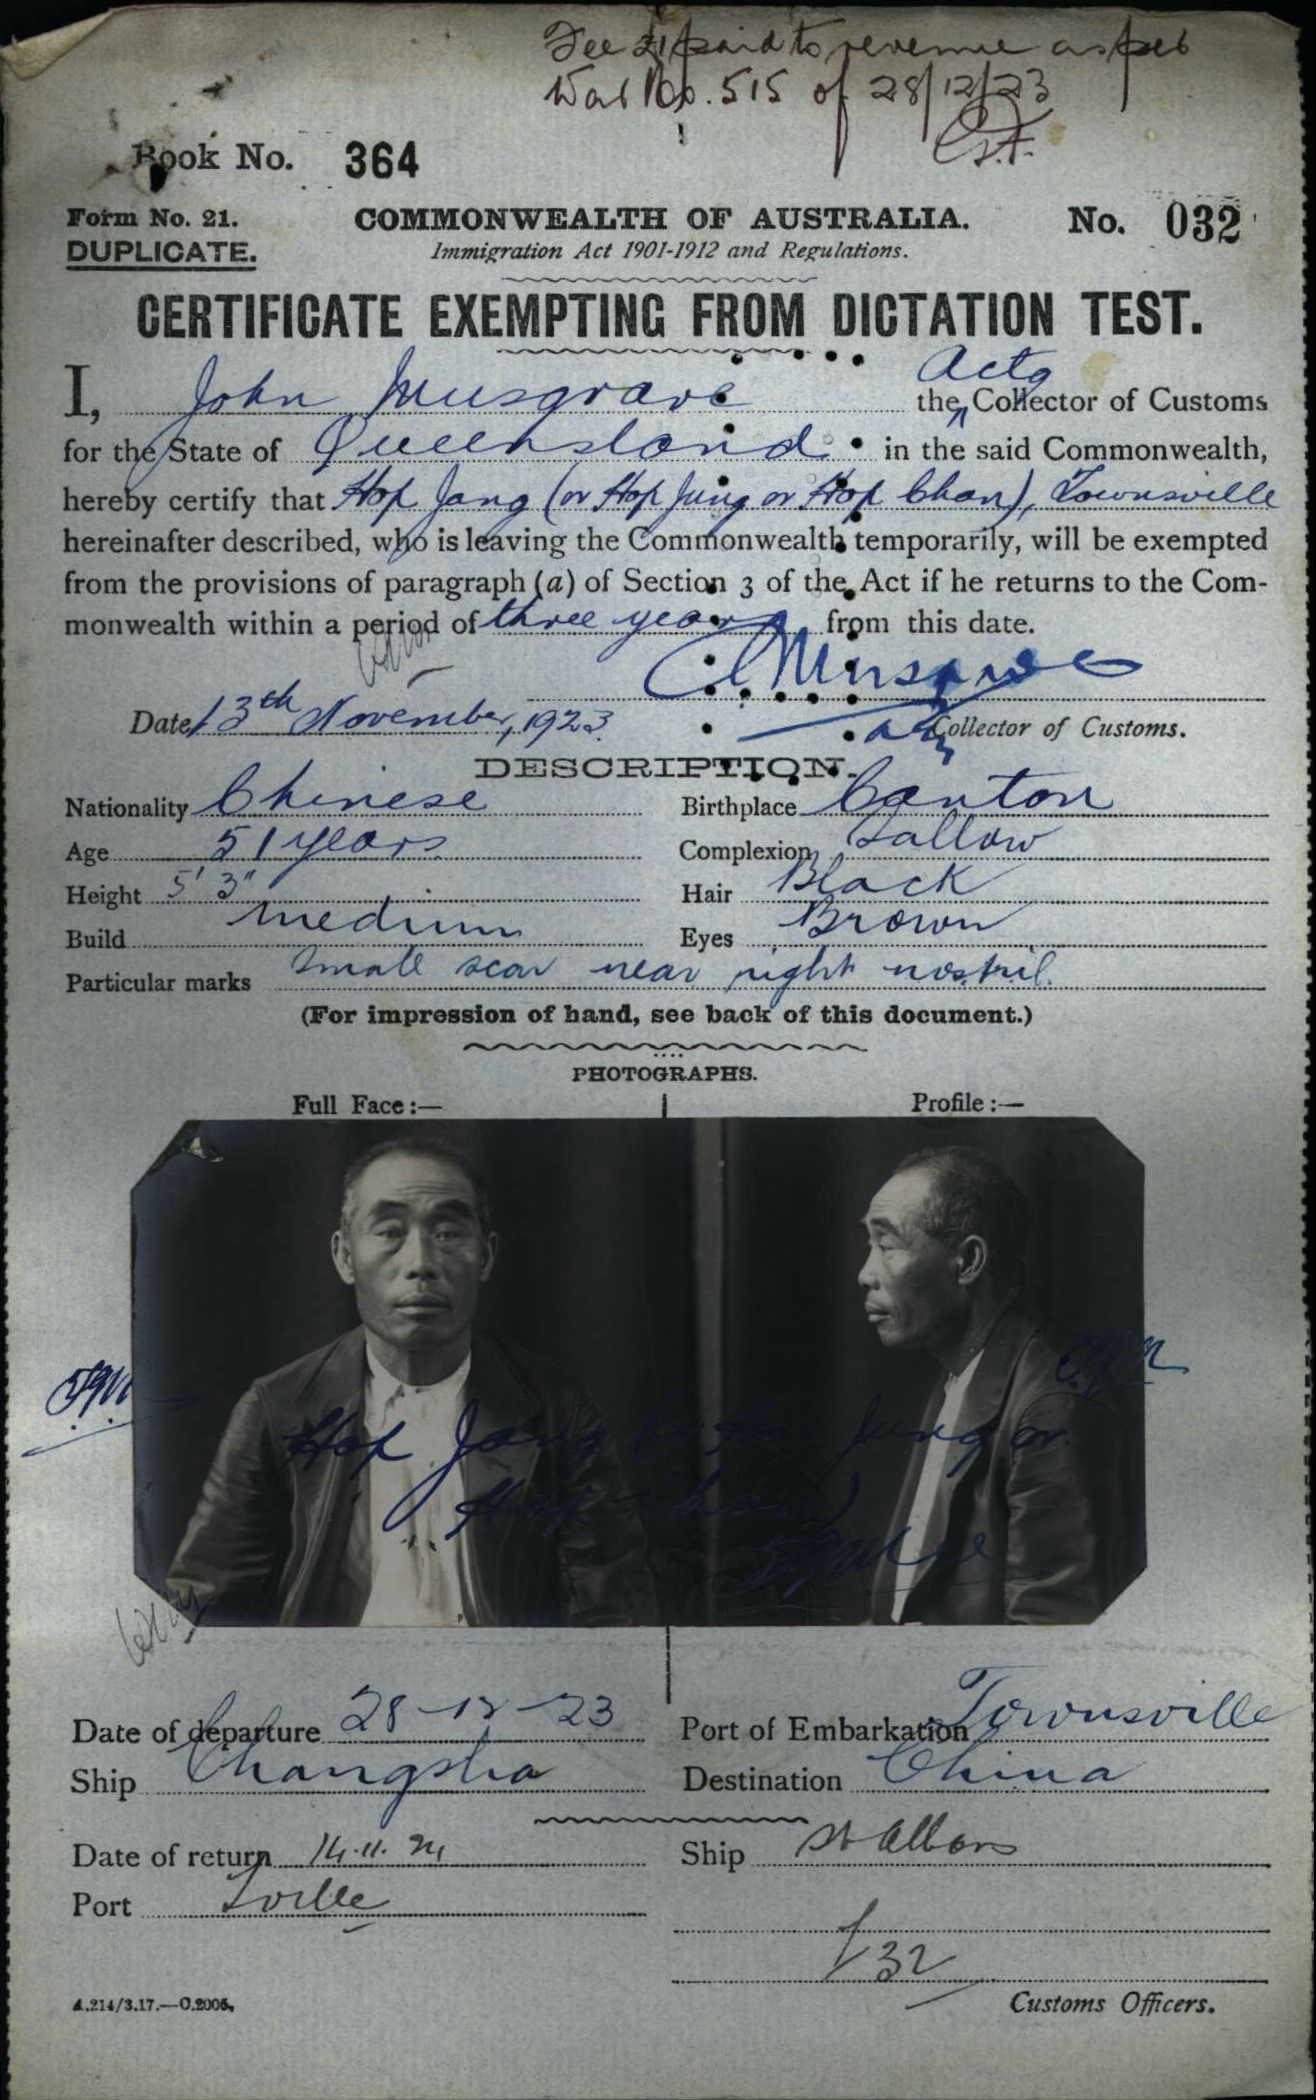 Fee £1 paid to revenue as per
No. 515 of 28/12/23
Book No. 364
Form No. 21.
DUPLICATE.
COMMONWEALTH OF AUSTRALIA.
No. 032
Immigration Act 1901-1912 and Regulations.
CERTIFICATE EXEMPTING FROM DICTATION TEST.
I, John Musgrave the Actg Collector of Customs
for the State of Queensland in the said Commonwealth,
hereby certify that Hop Jang (or Hop Jung or Hop Chan), Townsville
hereinafter described, who is leaving the Commonwealth temporarily, will be exempted
from the provisions of paragraph (a) of Section 3 of the Act if he returns to the Com-
monwealth within a period of three years from this date.
Musgrave
Date 13th November, 1923.
Collector of Customs.
DESCRIPTION.
Nationality Chinese Birthplace Canton
Age 51 years Complexion Sallow
Height 5' 3" Hair Black
Build medium Eyes Brown
Particular marks Small scar near right nostril.
(For impression of hand, see back of this document.)
PHOTOGRAPHS.
Full Face :— Profile :—
Hop Jang (or Hop Jung or
Hop Chan)
Date of departure 28-12-23 Port of Embarkation Townsville
Ship Changsha Destination China
Date of return 14.11.24 Ship St Albans
Port Tville
32
A.214/3.17.—C.2005.
Customs Officers.